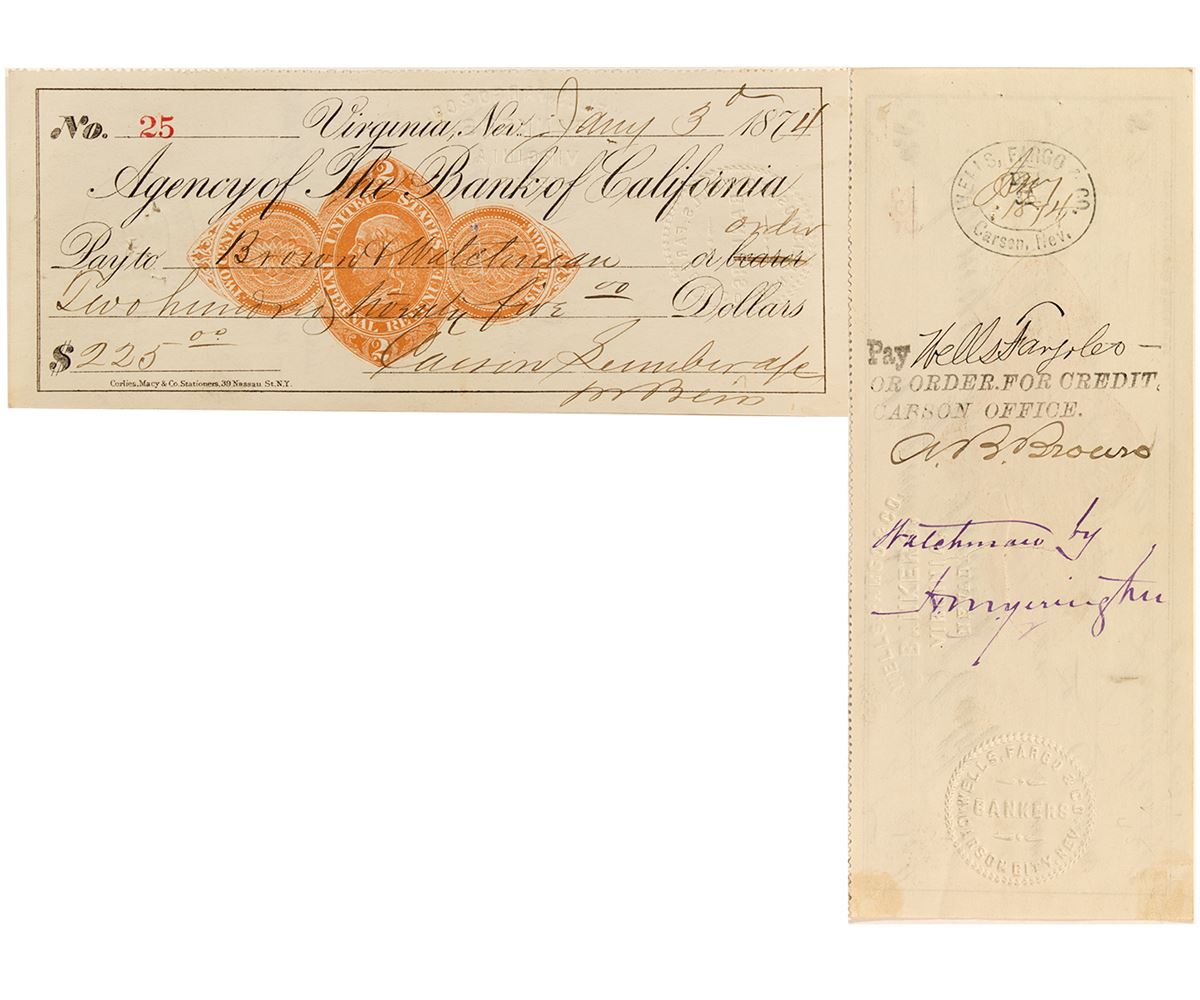 No. 25 Virginia, Nev. Jany 3d 1874
Agency of The Bank of California
order
Pay to Brown & Watchman or bearer
Two hundred twenty five 00 Dollars
$ 225 00
Carson
Corlies, Macy & Co. Stationers, 39 Nassau St. N.Y.
2
UNITED STATES
TWO CENTS
TWO CENTS
INTERNAL REVENUE
2
WELLS, FARGO & CO.
1874
Carson, Nev.
Pay Wells Fargo & Co
OR ORDER. FOR CREDIT,
CARSON OFFICE.
A. B. Brown
Watchman by
H. M. Yerington
WELLS, FARGO & CO.
BANKERS
VIRGINIA
NEVADA
WELLS, FARGO & CO
BANKERS
CARSON CITY, NEV.